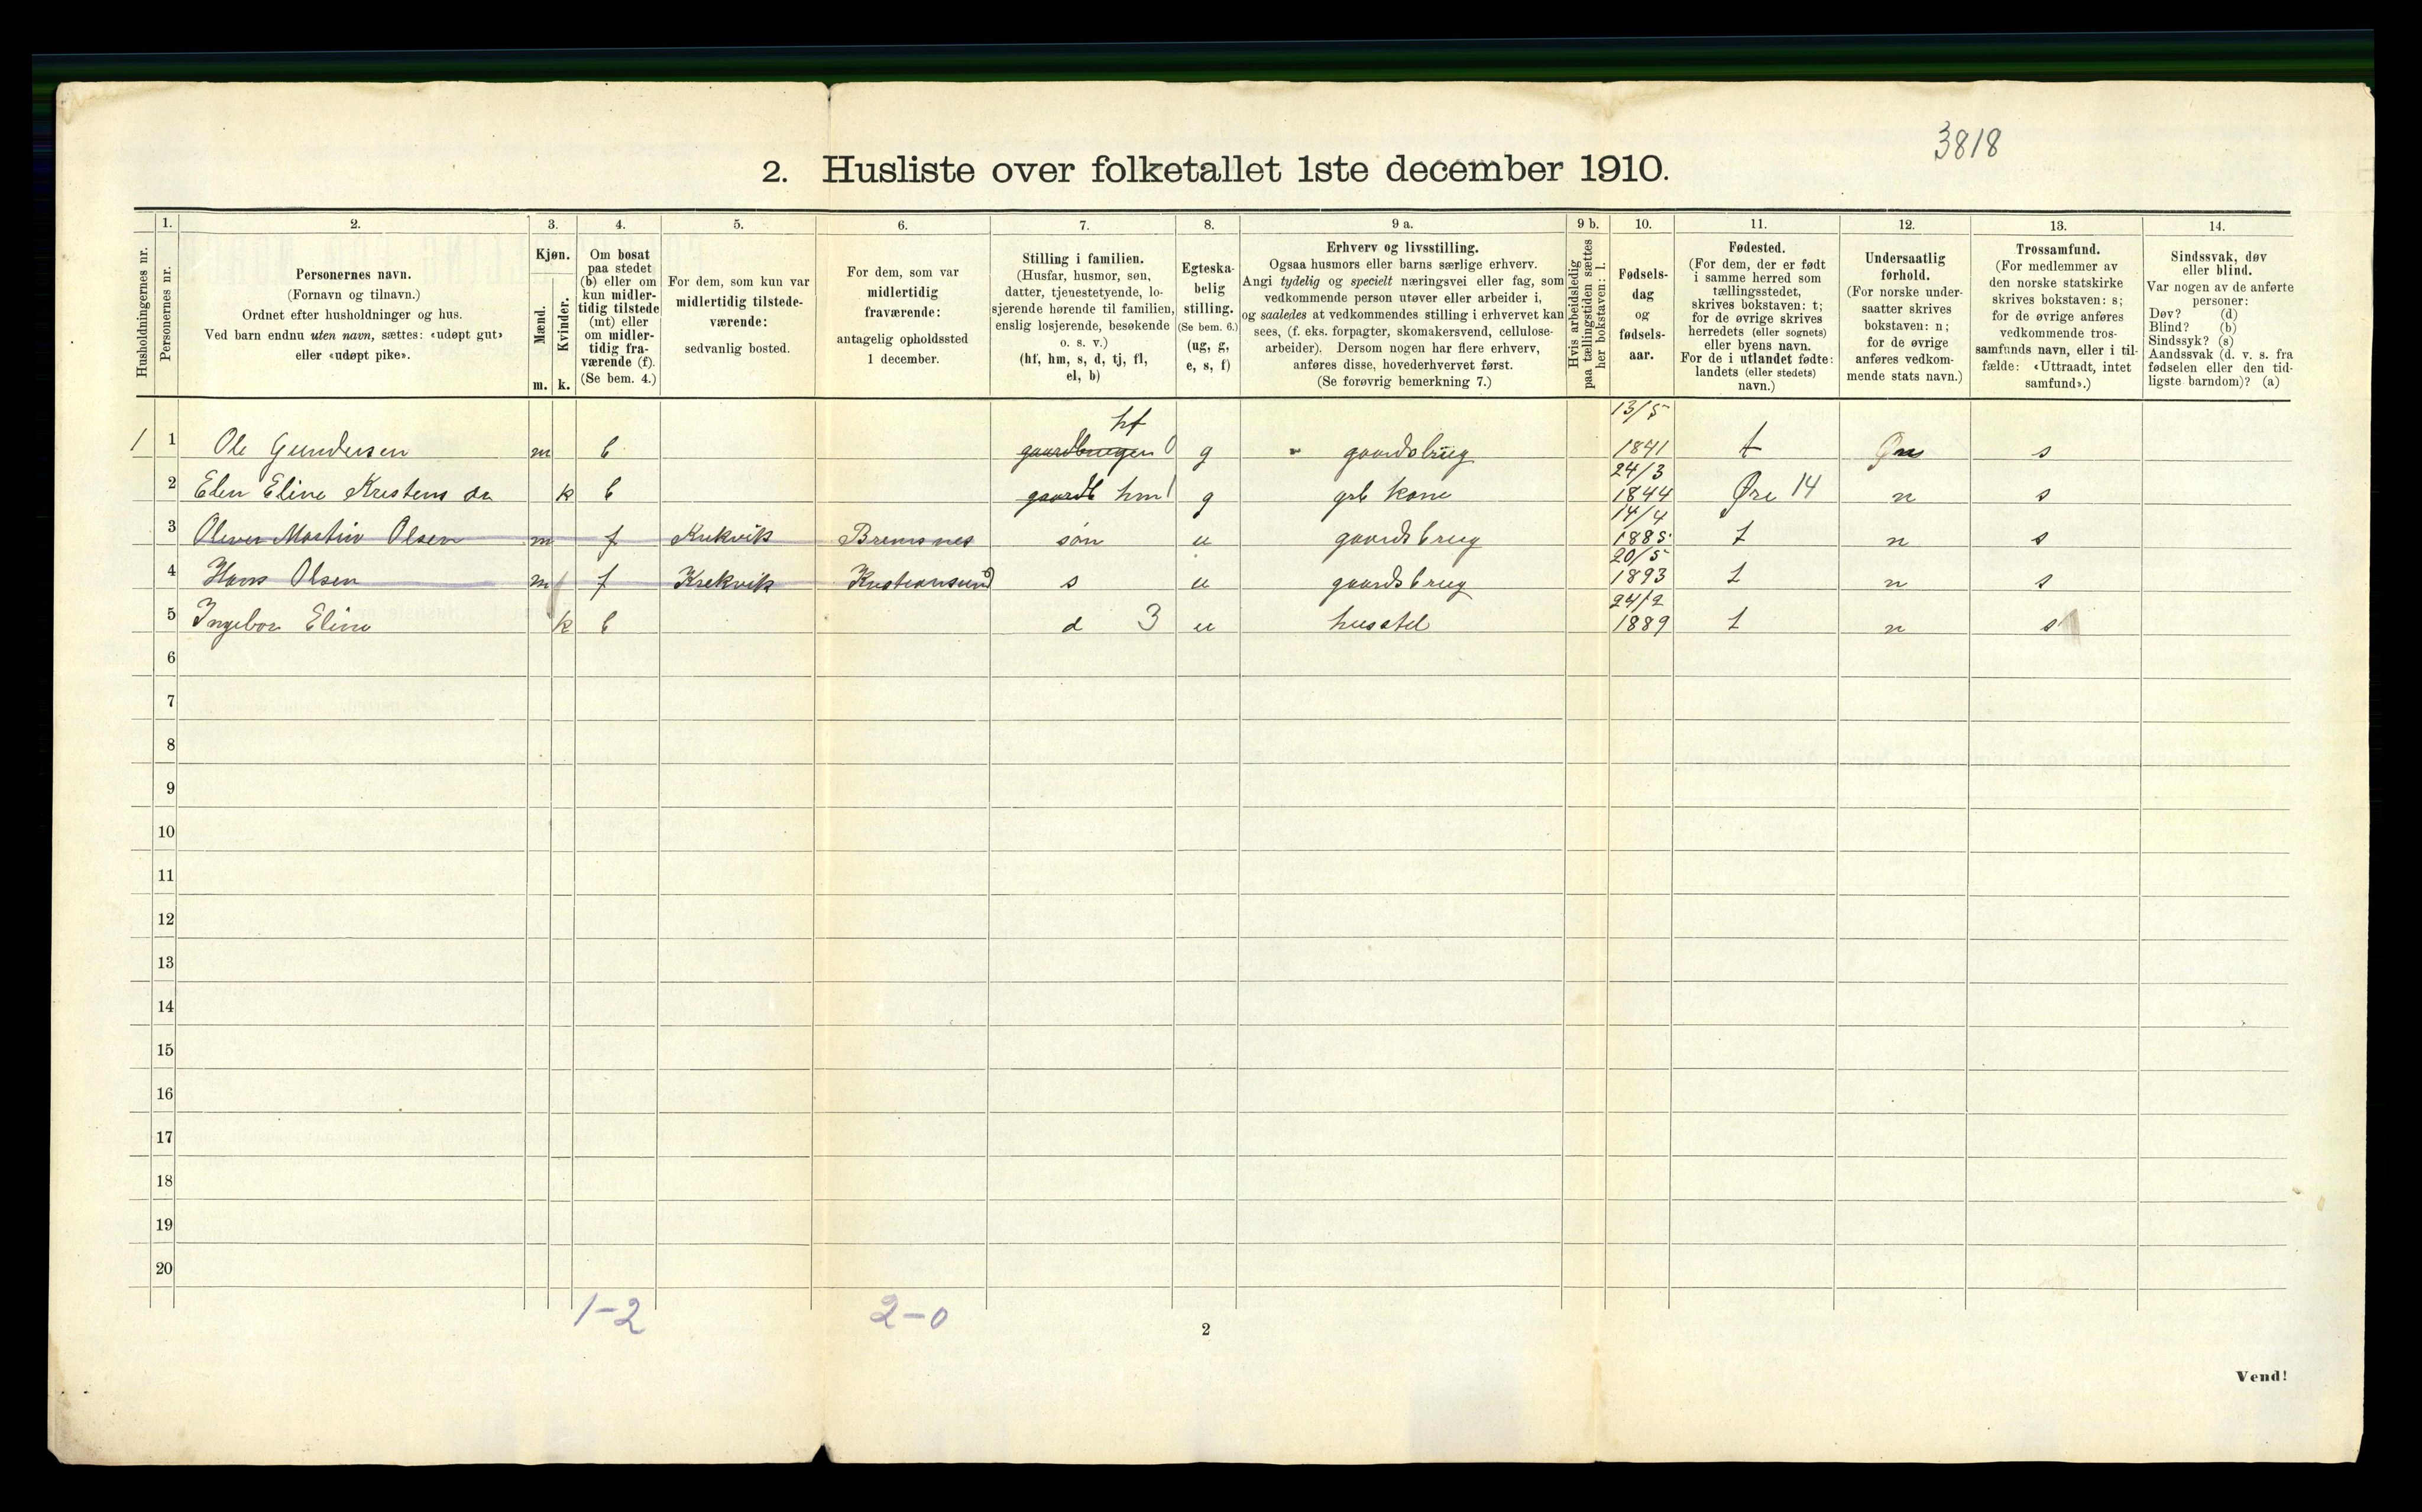 3818
2. Husliste over folketallet 1ste december 1910.
Husholdningernes nr.
1.
Personernes nr.
2.
Personernes navn.
(Fornavn og tilnavn.)
Ordnet efter husholdninger og hus.
Ved barn endnu uten navn, sættes: «udøpt gut»
eller «udøpt pike».
3.
Kjøn.
Mænd.
m.
Kvinder.
k.
4.
Om bosat
paa stedet
(b) eller om
kun midler-
tidig tilstede
(mt) eller
om midler-
tidig fra-
værende (f).
(Se bem. 4.)
5.
For dem, som kun var
midlertidig tilstede-
værende:
sedvanlig bosted.
6.
For dem, som var
midlertidig
fraværende:
antagelig opholdssted
1 december.
7.
Stilling i familien.
(Husfar, husmor, søn,
datter, tjenestetyende, lo-
sjerende hørende til familien,
enslig losjerende, besøkende
o. s. v.)
(hf, hm, s, d, tj, fl,
el, b)
8.
Egteska-
belig
stilling.
(Se bem. 6.)
(ug, g,
e, s, f)
9 a.
Erhverv og livsstilling.
Ogsaa husmors eller barns særlige erhverv.
Angi tydelig og specielt næringsvei eller fag, som
vedkommende person utøver eller arbeider i,
og saaledes at vedkommendes stilling i erhvervet kan
sees, (f. eks. forpagter, skomakersvend, cellulose-
arbeider). Dersom nogen har flere erhverv,
anføres disse, hovederhvervet først.
(Se forøvrig bemerkning 7.)
9 b.
Hvis arbeidsledig
paa tællingstiden sættes
her bokstaven: l.
10.
Fødsels-
dag
og
fødsels-
aar.
11.
Fødested.
(For dem, der er født
i samme herred som
tællingsstedet,
skrives bokstaven: t;
for de øvrige skrives
herredets (eller sognets)
eller byens navn.
For de i utlandet fødte:
landets (eller stedets)
navn.)
12.
Undersaatlig
forhold.
(For norske under-
saatter skrives
bokstaven: n;
for de øvrige
anføres vedkom-
mende stats navn.)
13.
Trossamfund.
(For medlemmer av
den norske statskirke
skrives bokstaven: s;
for de øvrige anføres
vedkommende tros-
samfunds navn, eller i til-
fælde: «Uttraadt, intet
samfund».)
14.
Sindssvak, døv
eller blind.
Var nogen av de anførte
personer:
Døv? (d)
Blind? (b)
Sindssyk? (s)
Aandssvak (d. v. s. fra
fødselen eller den tid-
ligste barndom)? (a)
1 1 Ole Gundersen m b gaardbruger hf 0 g gaardsbrug 13/5 1841 t n s
2 Elen Eline Kristens da k b gaardb hm 1 g grb kone 24/3 1844 Øre 14 n s
3 Oliver Martin Olsen m f Krekvik Bremsnes søn u gaardsbrug 14/4 1885 t n s
4 Hans Olsen m f Krekvik Kristiansund s u gaardsbrug 20/5 1893 t n s
5 Ingebor Eline k b d 3 u husstel 24/2 1889 t n s
6
7
8
9
10
11
12
13
14
15
16
17
18
19
20
1-2 2-0
2
Vend!